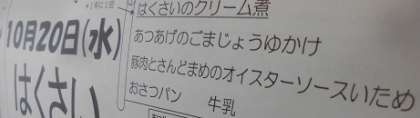 はくさいのクリーム煮
10月20日(水)
あつあげのごまじょうゆかけ
豚肉とさんどまめのオイスターソースいため
はくさい
おさつパン 牛乳